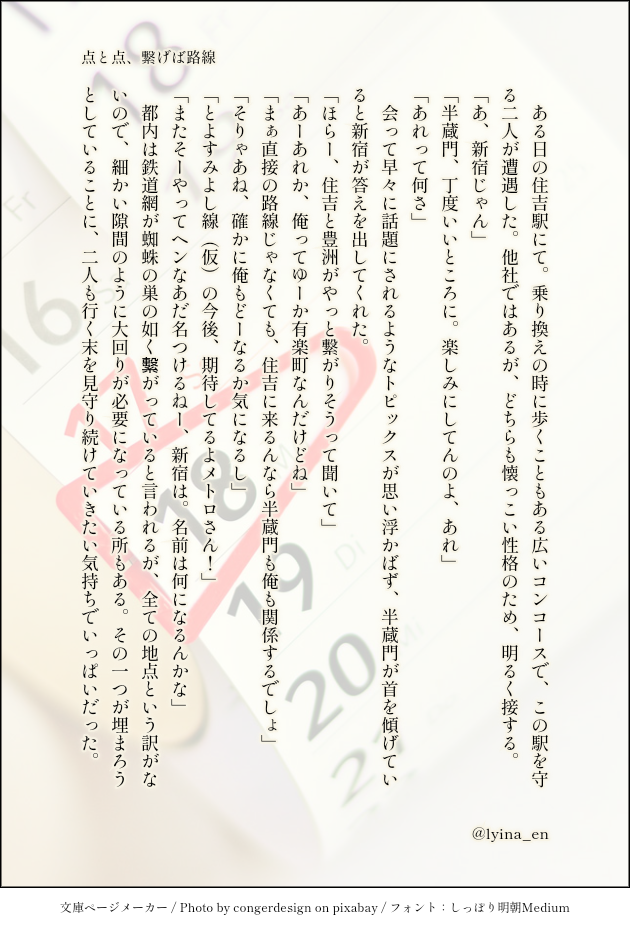 点と点、繋げば路線
　ある日の住吉駅にて。乗り換えの時に歩くこともある広いコンコースで、この駅を守
る二人が遭遇した。他社ではあるが、どちらも懐っこい性格のため、明るく接する。
「あ、新宿じゃん」
「半蔵門、丁度いいところに。楽しみにしてんのよ、あれ」
「あれって何さ」
　会って早々に話題にされるようなトピックスが思い浮かばず、半蔵門が首を傾げてい
ると新宿が答えを出してくれた。
「ほらー、住吉と豊洲がやっと繋がりそうって聞いて」
「あーあれか、俺ってゆーか有楽町なんだけどね」
「まぁ直接の路線じゃなくても、住吉に来るんなら半蔵門も俺も関係するでしょ」
「そりゃあね、確かに俺もどーなるか気になるし」
「とよすみよし線（仮）の今後、期待してるよメトロさん！」
「またそーやってヘンなあだ名つけるねー、新宿は。名前は何になるんかな」
　都内は鉄道網が蜘蛛の巣の如く繋がっていると言われるが、全ての地点という訳がな
いので、細かい隙間のように大回りが必要になっている所もある。その一つが埋まろう
としていることに、二人も行く末を見守り続けていきたい気持ちでいっぱいだった。
@lyina_en
Fr
18
Fr
16
17
18
19
Di
20
21
文庫ページメーカー / Photo by congerdesign on pixabay / フォント：しっぽり明朝Medium